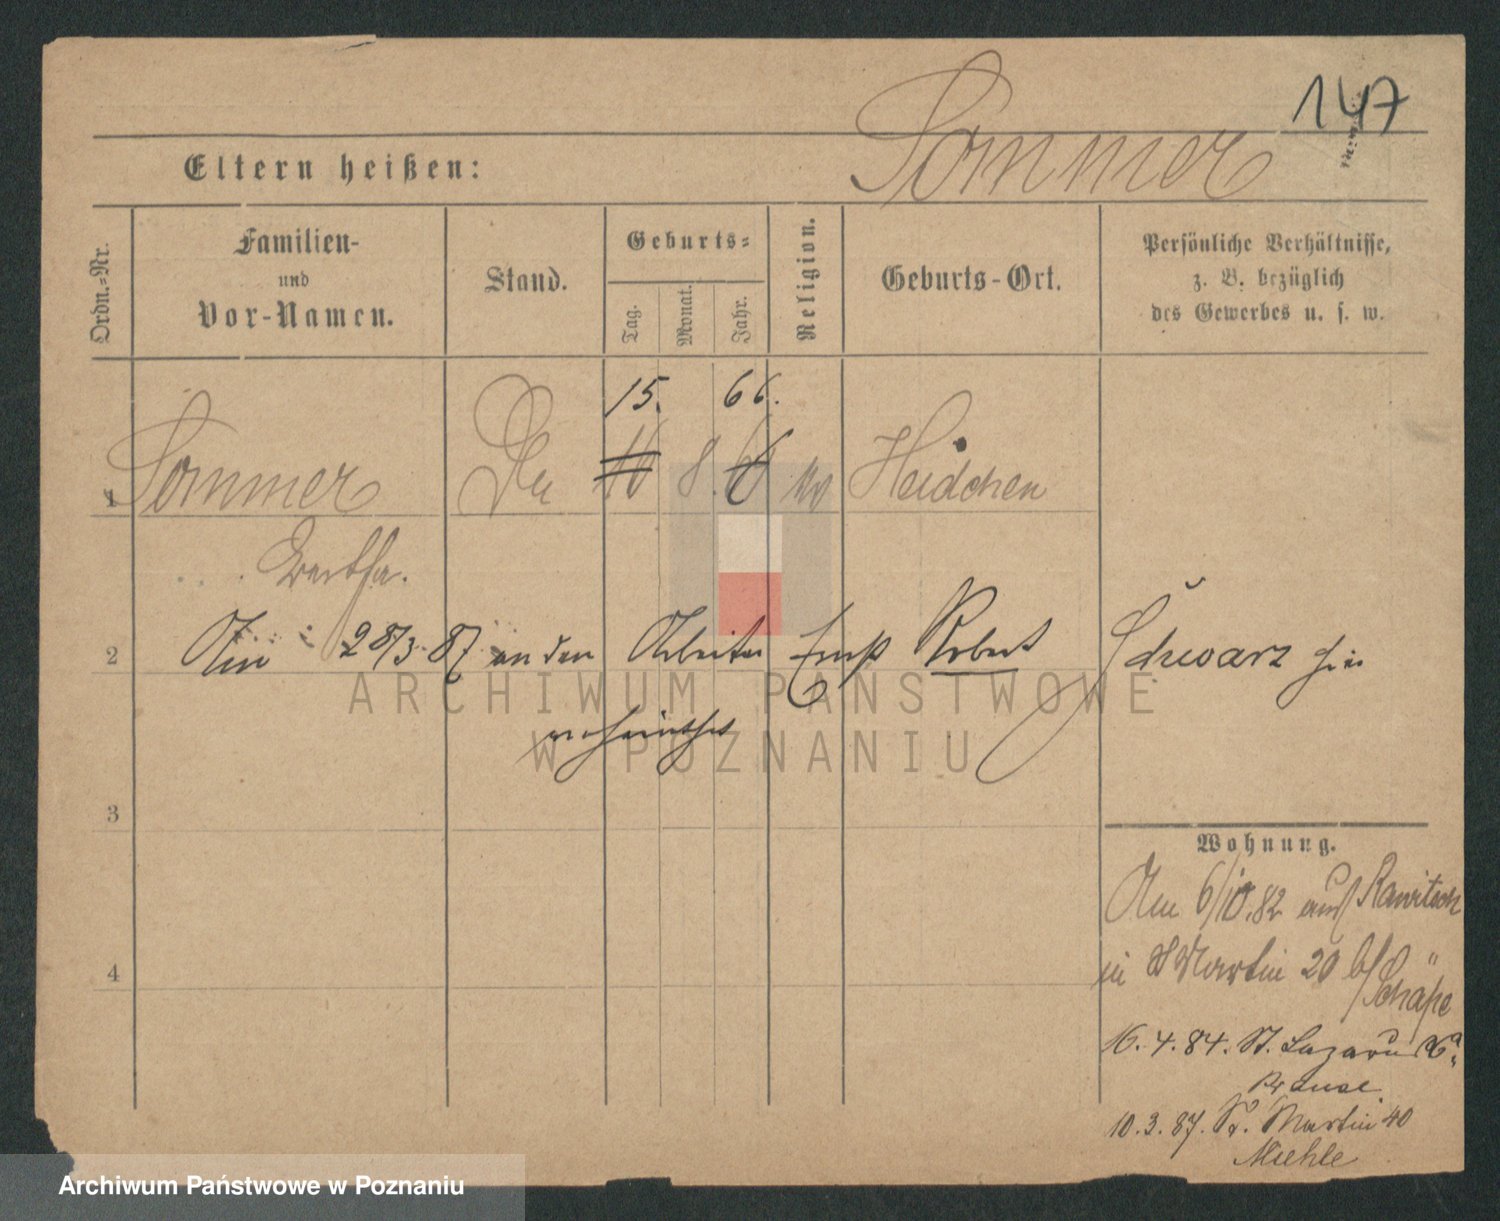 147
Sommer
Eltern heißen:
Ordn.-Nr.
Familien-
und
Vor-Namen.
Stand.
Geburts-
Tag.
Monat.
Jahr.
Religion.
Geburts-Ort.
Persönliche Verhältnisse,
z. B. bezüglich
des Gewerbes u. s. w.
15. 66.
1 Sommer 8. Heidchen
Bertha.
2 Am 28/3 87 an den Arbeiter Ernst Robert Schwarz hier
verheirathet
3
4
Wohnung.
Am 6/10.82 aus Rawitsch
in St Martin 20 b/ Schäpe
16. 4. 84. St. Lazarus
Krause
10. 3. 87. St. Martin 40
Muehle
ARCHIWUM PAŃSTWOWE
W POZNANIU
Archiwum Państwowe w Poznaniu